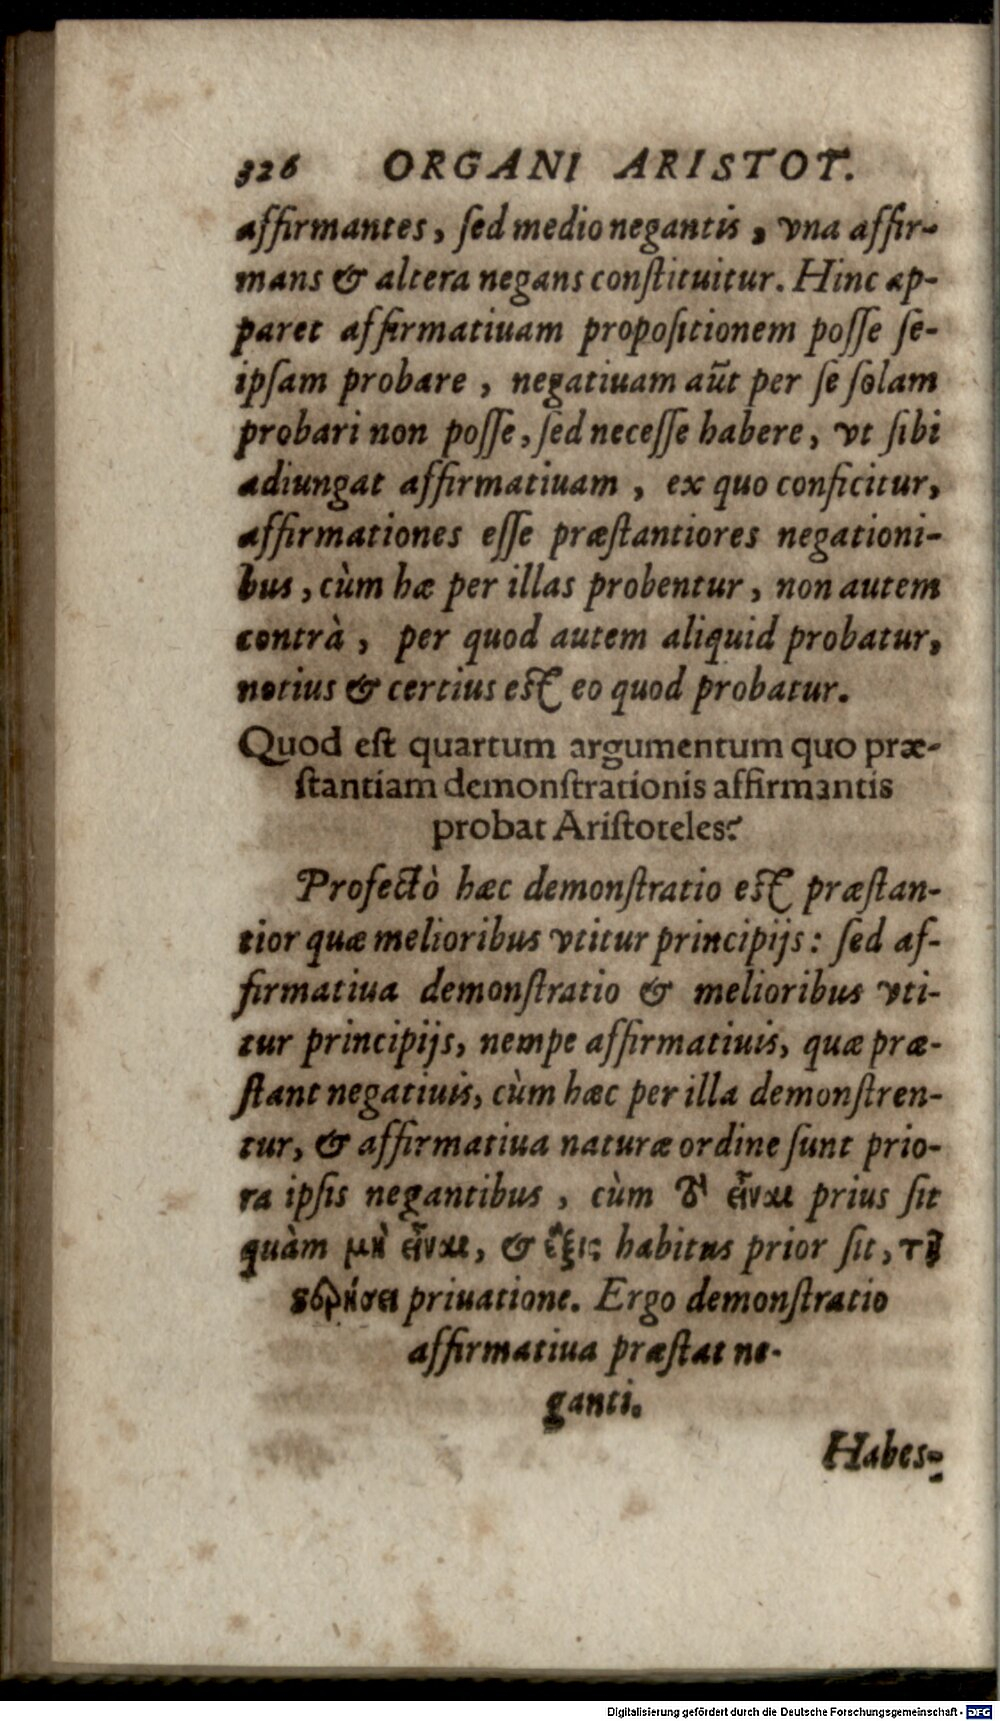 326 ORGANI ARISTOT.
affirmantes, ſed medio negantis, vna affir-
mans & altera negans conſtituitur. Hinc ap-
paret affirmatiuam propoſitionem poſſe ſe-
ipſam probare, negatiuam aūt per ſe ſolam
probari non poſſe, ſed neceſſe habere, vt ſibi
adiungat affirmatiuam, ex quo conficitur,
affirmationes eſſe præſtantiores negationi-
bus, cùm hæ per illas probentur, non autem
contrà, per quod autem aliquid probatur,
notius & certius eſt eo quod probatur.
Quod eſt quartum argumentum quo præ-
ſtantiam demonſtrationis affirmantis
probat Ariſtoteles?
Profectò hæc demonſtratio eſt præſtan-
tior quæ melioribus vtitur principijs: ſed af-
firmatiua demonſtratio & melioribus vti-
tur principijs, nempe affirmatiuis, quæ præ-
ſtant negatiuis, cùm hæc per illa demonſtren-
tur, & affirmatiua naturæ ordine ſunt prio-
ra ipſis negantibus, cùm τὸ εἶναι prius ſit
quàm μὴ εἶναι, & ἕξις habitus prior ſit, τῇ
ϛερήσει priuatione. Ergo demonſtratio
affirmatiua præſtat ne-
ganti.
Habes-
Digitalisierung gefördert durch die Deutsche Forschungsgemeinschaft - DFG